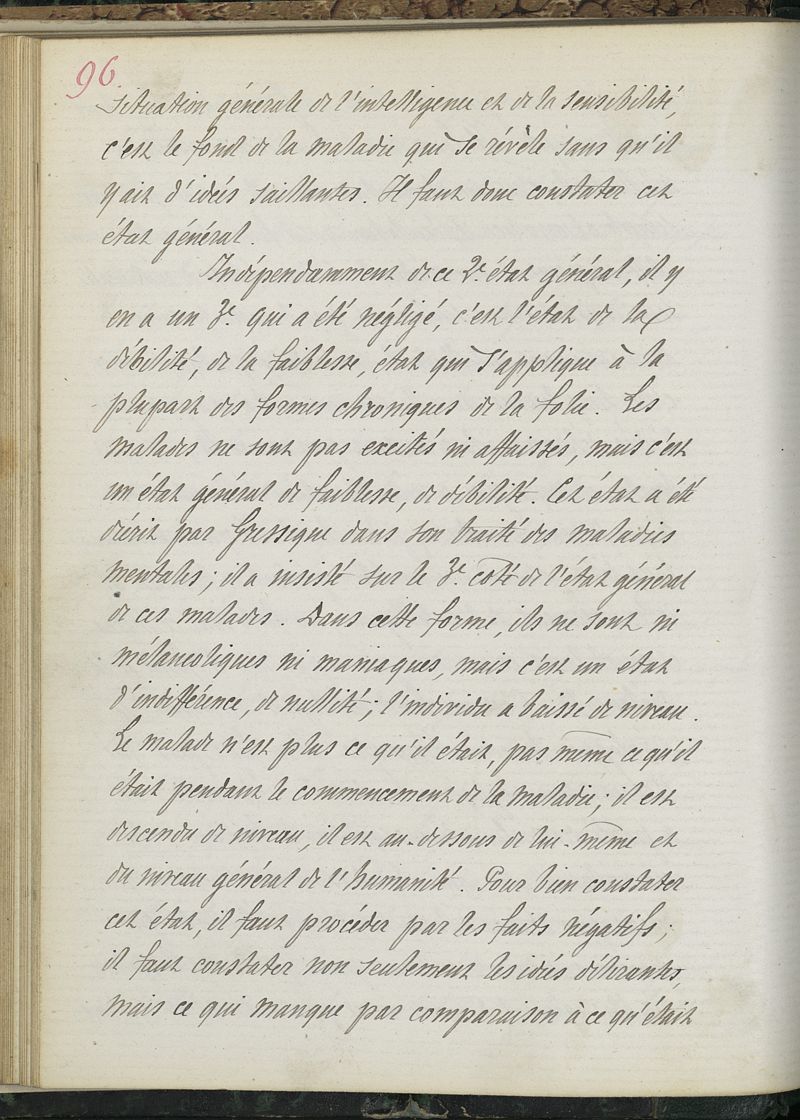 96
Situation générale de l'intelligence et de la sensibilité,
c'est le fond de la maladie qui se révèle sans qu'il
y ait d'idées saillantes. Il faut donc constater cet
état général.
Indépendamment de ce 2e état général, il y
en a un 3e qui a été négligé, c'est l'état de la
débilité, de la faiblesse, état qui s'applique à la
plupart des formes chroniques de la folie. Les
malades ne sont pas excités ni affaissés, mais c'est
un état général de faiblesse, de débilité. Cet état a été
décrit par Gressigue dans son traité des maladies
mentales; il a insisté sur le 3e côté de l'état général
de ces malades. Dans cette forme, ils ne sont ni
mélancoliques ni maniaques, mais c'est un état
d'indifférence, de nullité; l'individu a baissé de niveau.
Le malade n'est plus ce qu'il était, pas même ce qu'il
était pendant le commencement de la maladie; il est
descendu de niveau, il est au-dessous de lui-même et
du niveau général de l'humanité. Pour bien constater
cet état, il faut procéder par les faits négatifs;
il faut constater non seulement les idées délirantes,
mais ce qui manque par comparaison à ce qu'était